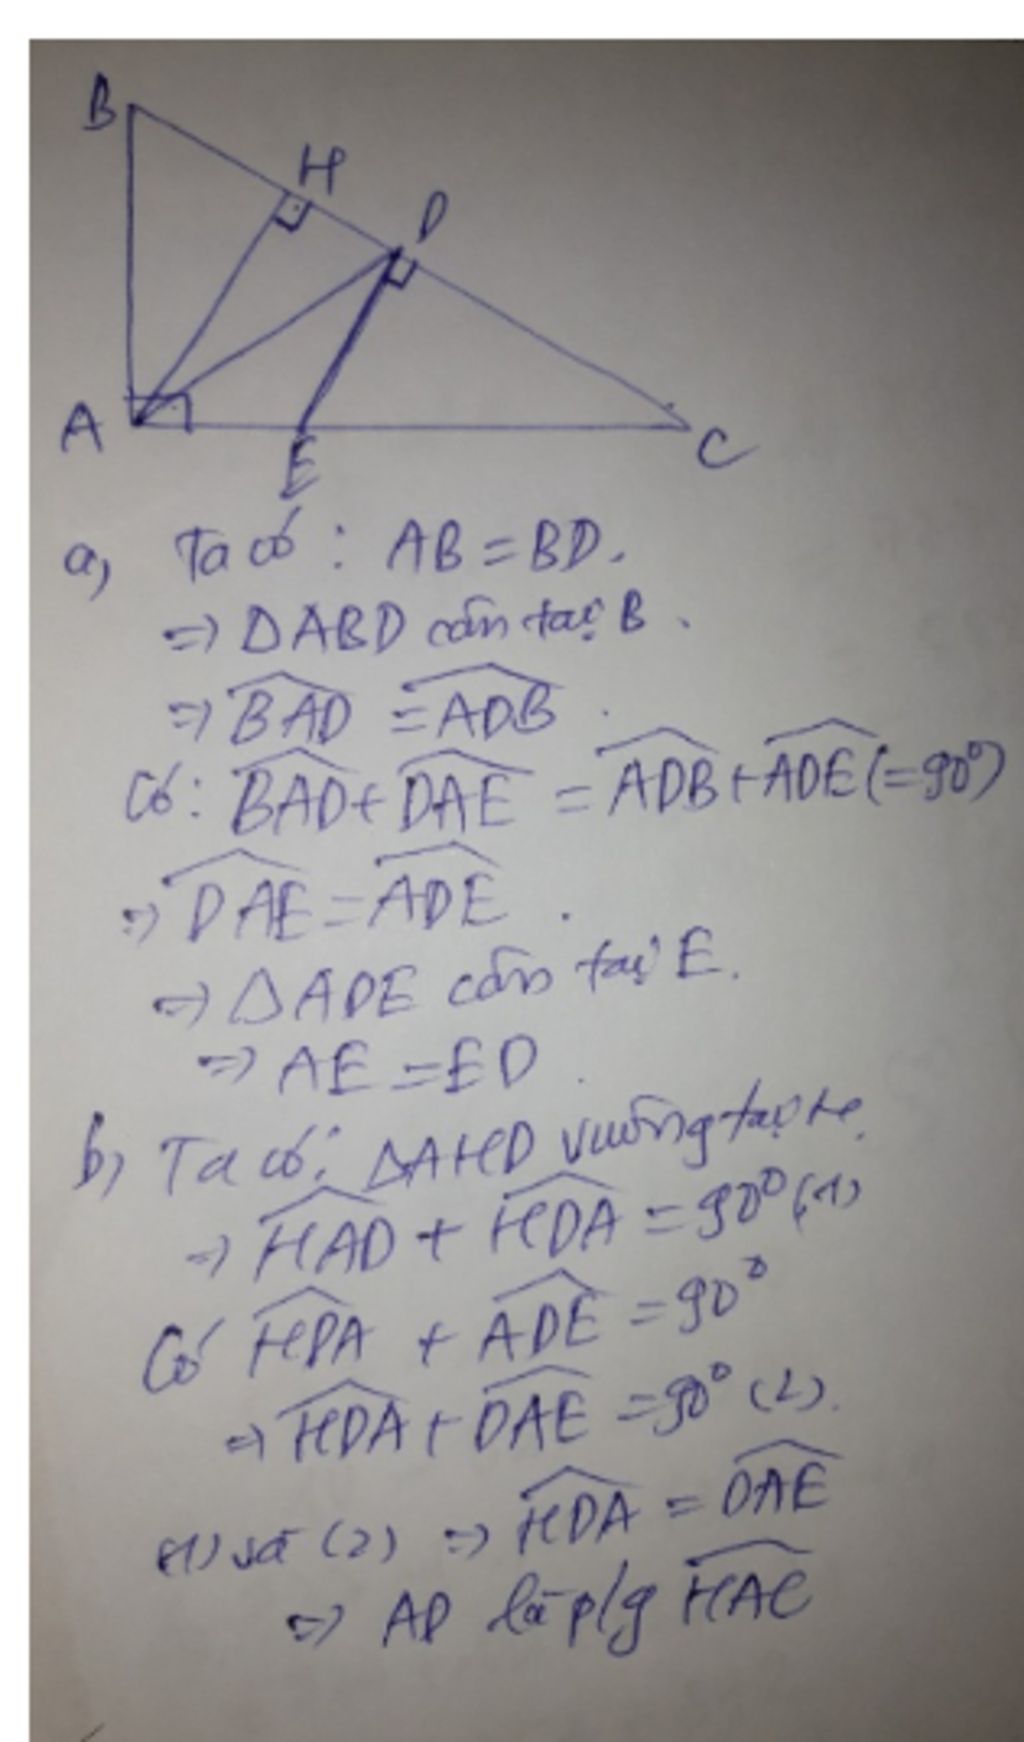 B
H
D
A
E
C
a, Ta có : AB = BD.
=> ΔABD cân tại B .
=> \widehat{BAD} = \widehat{ADB} .
Có: \widehat{BAD} + \widehat{DAE} = \widehat{ADB} + \widehat{ADE} (=90°)
=> \widehat{DAE} = \widehat{ADE} .
=> ΔADE cân tại E.
=> AE = ED .
b, Ta có: ΔAHD vuông tại H.
=> \widehat{HAD} + \widehat{HDA} = 90° (1)
Có \widehat{HDA} + \widehat{ADE} = 90°
=> \widehat{HDA} + \widehat{DAE} = 90° (2).
(1) và (2) => \widehat{HDA} = \widehat{DAE}
=> AD là p/g \widehat{HAC}